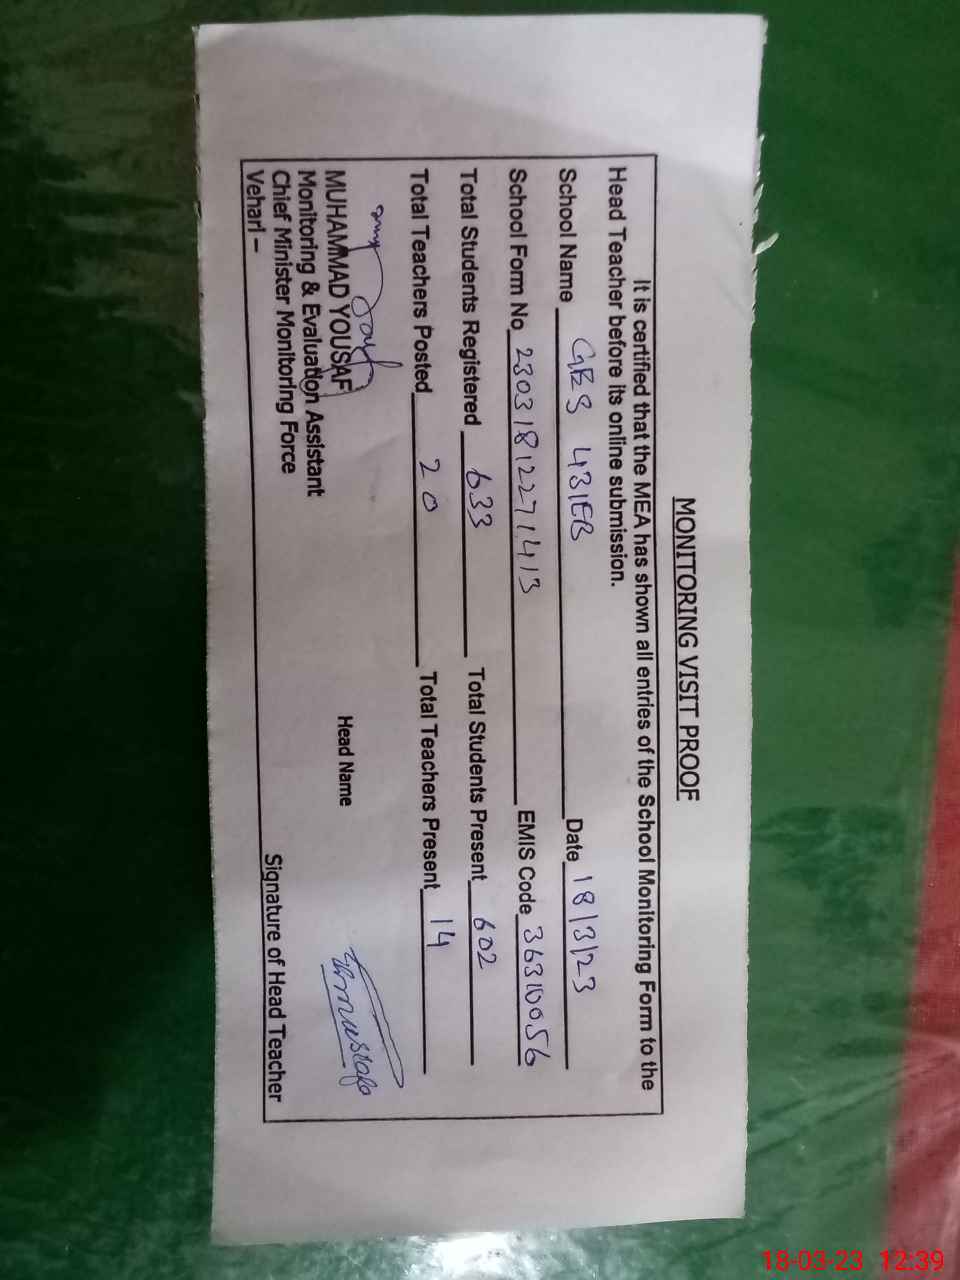 MONITORING VISIT PROOF
It is certified that the MEA has shown all entries of the School Monitoring Form to the
Head Teacher before its online submission.
School Name GES 431EB Date 18/3/23
School Form No 230318122271413 EMIS Code 36310056
Total Students Registered 633 Total Students Present 602
Total Teachers Posted 20 Total Teachers Present 14
MUHAMMAD YOUSAF Head Name
Monitoring & Evaluation Assistant
Chief Minister Monitoring Force
Vehari – Signature of Head Teacher
18-03-23 12:39